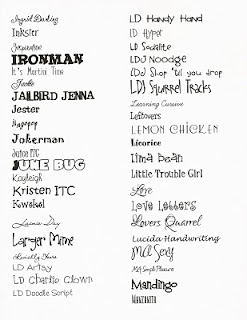 Ingrid Darling
Inkster
Jokewood
IRONMAN
It's Martini Time
Jacko
JAILBIRD JENNA
Jester
Jokerman
Juice ITC
JUNE BUG
Kayleigh
Kristen ITC
Kwekel
Lainie Day
Larger Mime
LD Artsy
LD Charlie Clown
LD Doodle Script
LD Handy Hand
LD Hyper
LD Sodalite
LDJ Noodge
LDJ Shop 'til you drop
LDJ Squirrel Tracks
Learning Cursive
Leftovers
LEMON CHICKEN
Licorice
Lima Bean
Little Trouble Girl
Love
Love Letters
Lovers Quarrel
Lucida Handwriting
MA Sexy
Mandingo
Manzanita